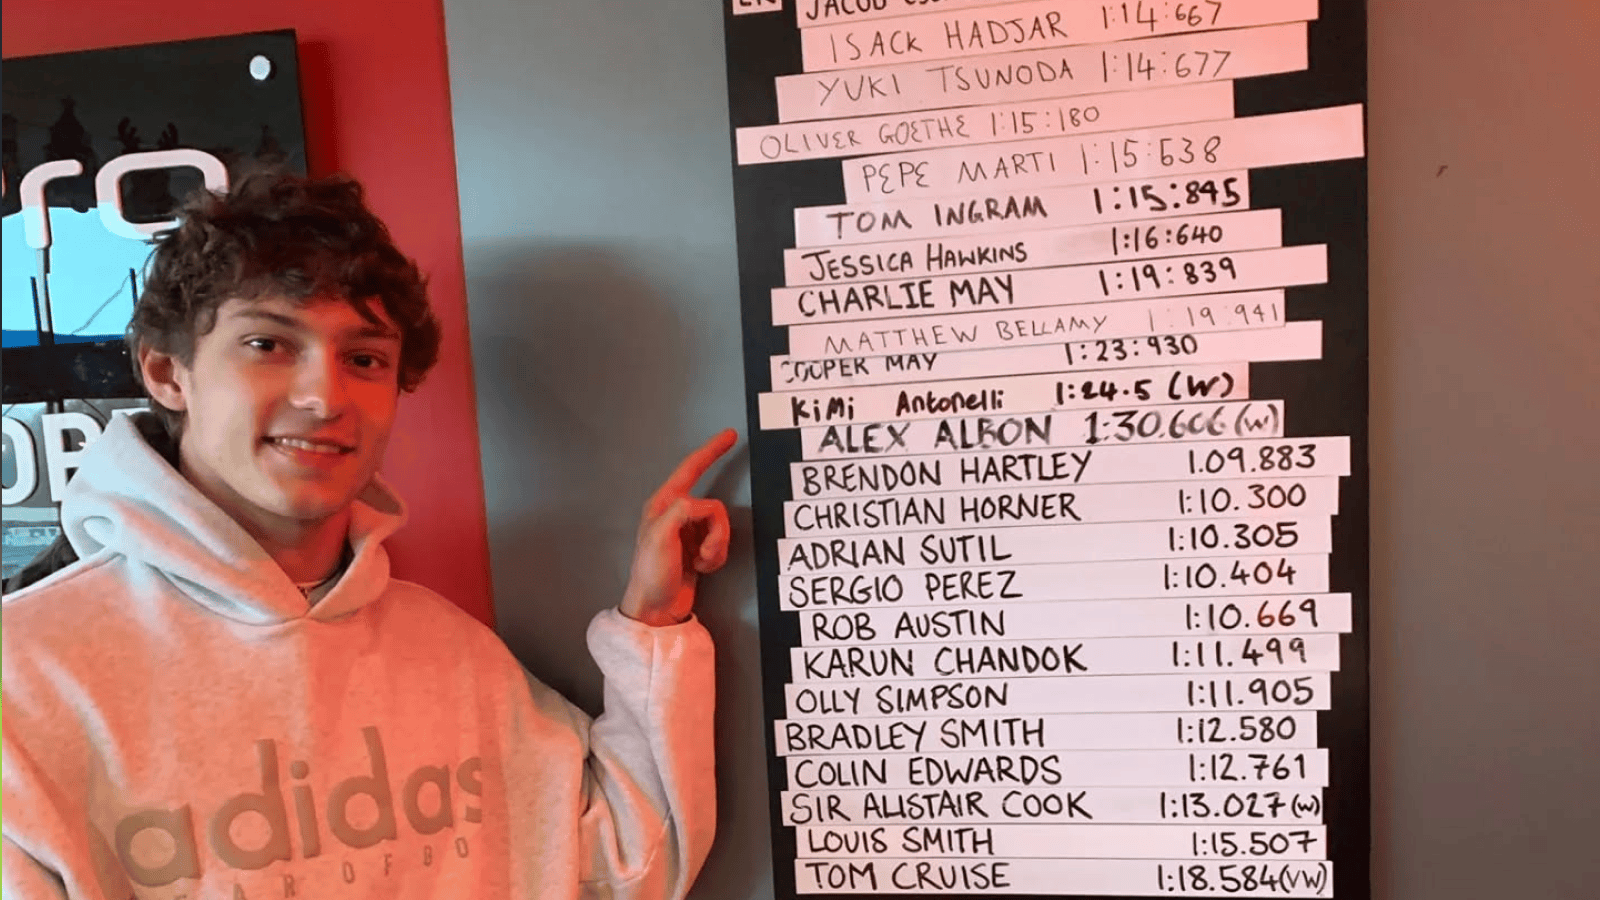 JACOB
ISACK HADJAR 1:14:667
YUKI TSUNODA 1:14:677
OLIVER GOETHE 1:15:180
PEPE MARTI 1:15:638
TOM INGRAM 1:15:845
JESSICA HAWKINS 1:16:640
CHARLIE MAY 1:19:839
MATTHEW BELLAMY 1:19:941
COOPER MAY 1:23:930
KiMi Antonelli 1:24.5 (W)
ALEX ALBON 1:30.606 (W)
BRENDON HARTLEY 1.09.883
CHRISTIAN HORNER 1:10.300
ADRIAN SUTIL 1:10.305
SERGIO PEREZ 1:10.404
ROB AUSTIN 1:10.669
KARUN CHANDOK 1:11.499
OLLY SIMPSON 1:11.905
BRADLEY SMITH 1:12.580
COLIN EDWARDS 1:12.761
SIR ALISTAIR COOK 1:13.027 (W)
LOUIS SMITH 1:15.507
TOM CRUISE 1:18.584 (VW)
ro
adidas